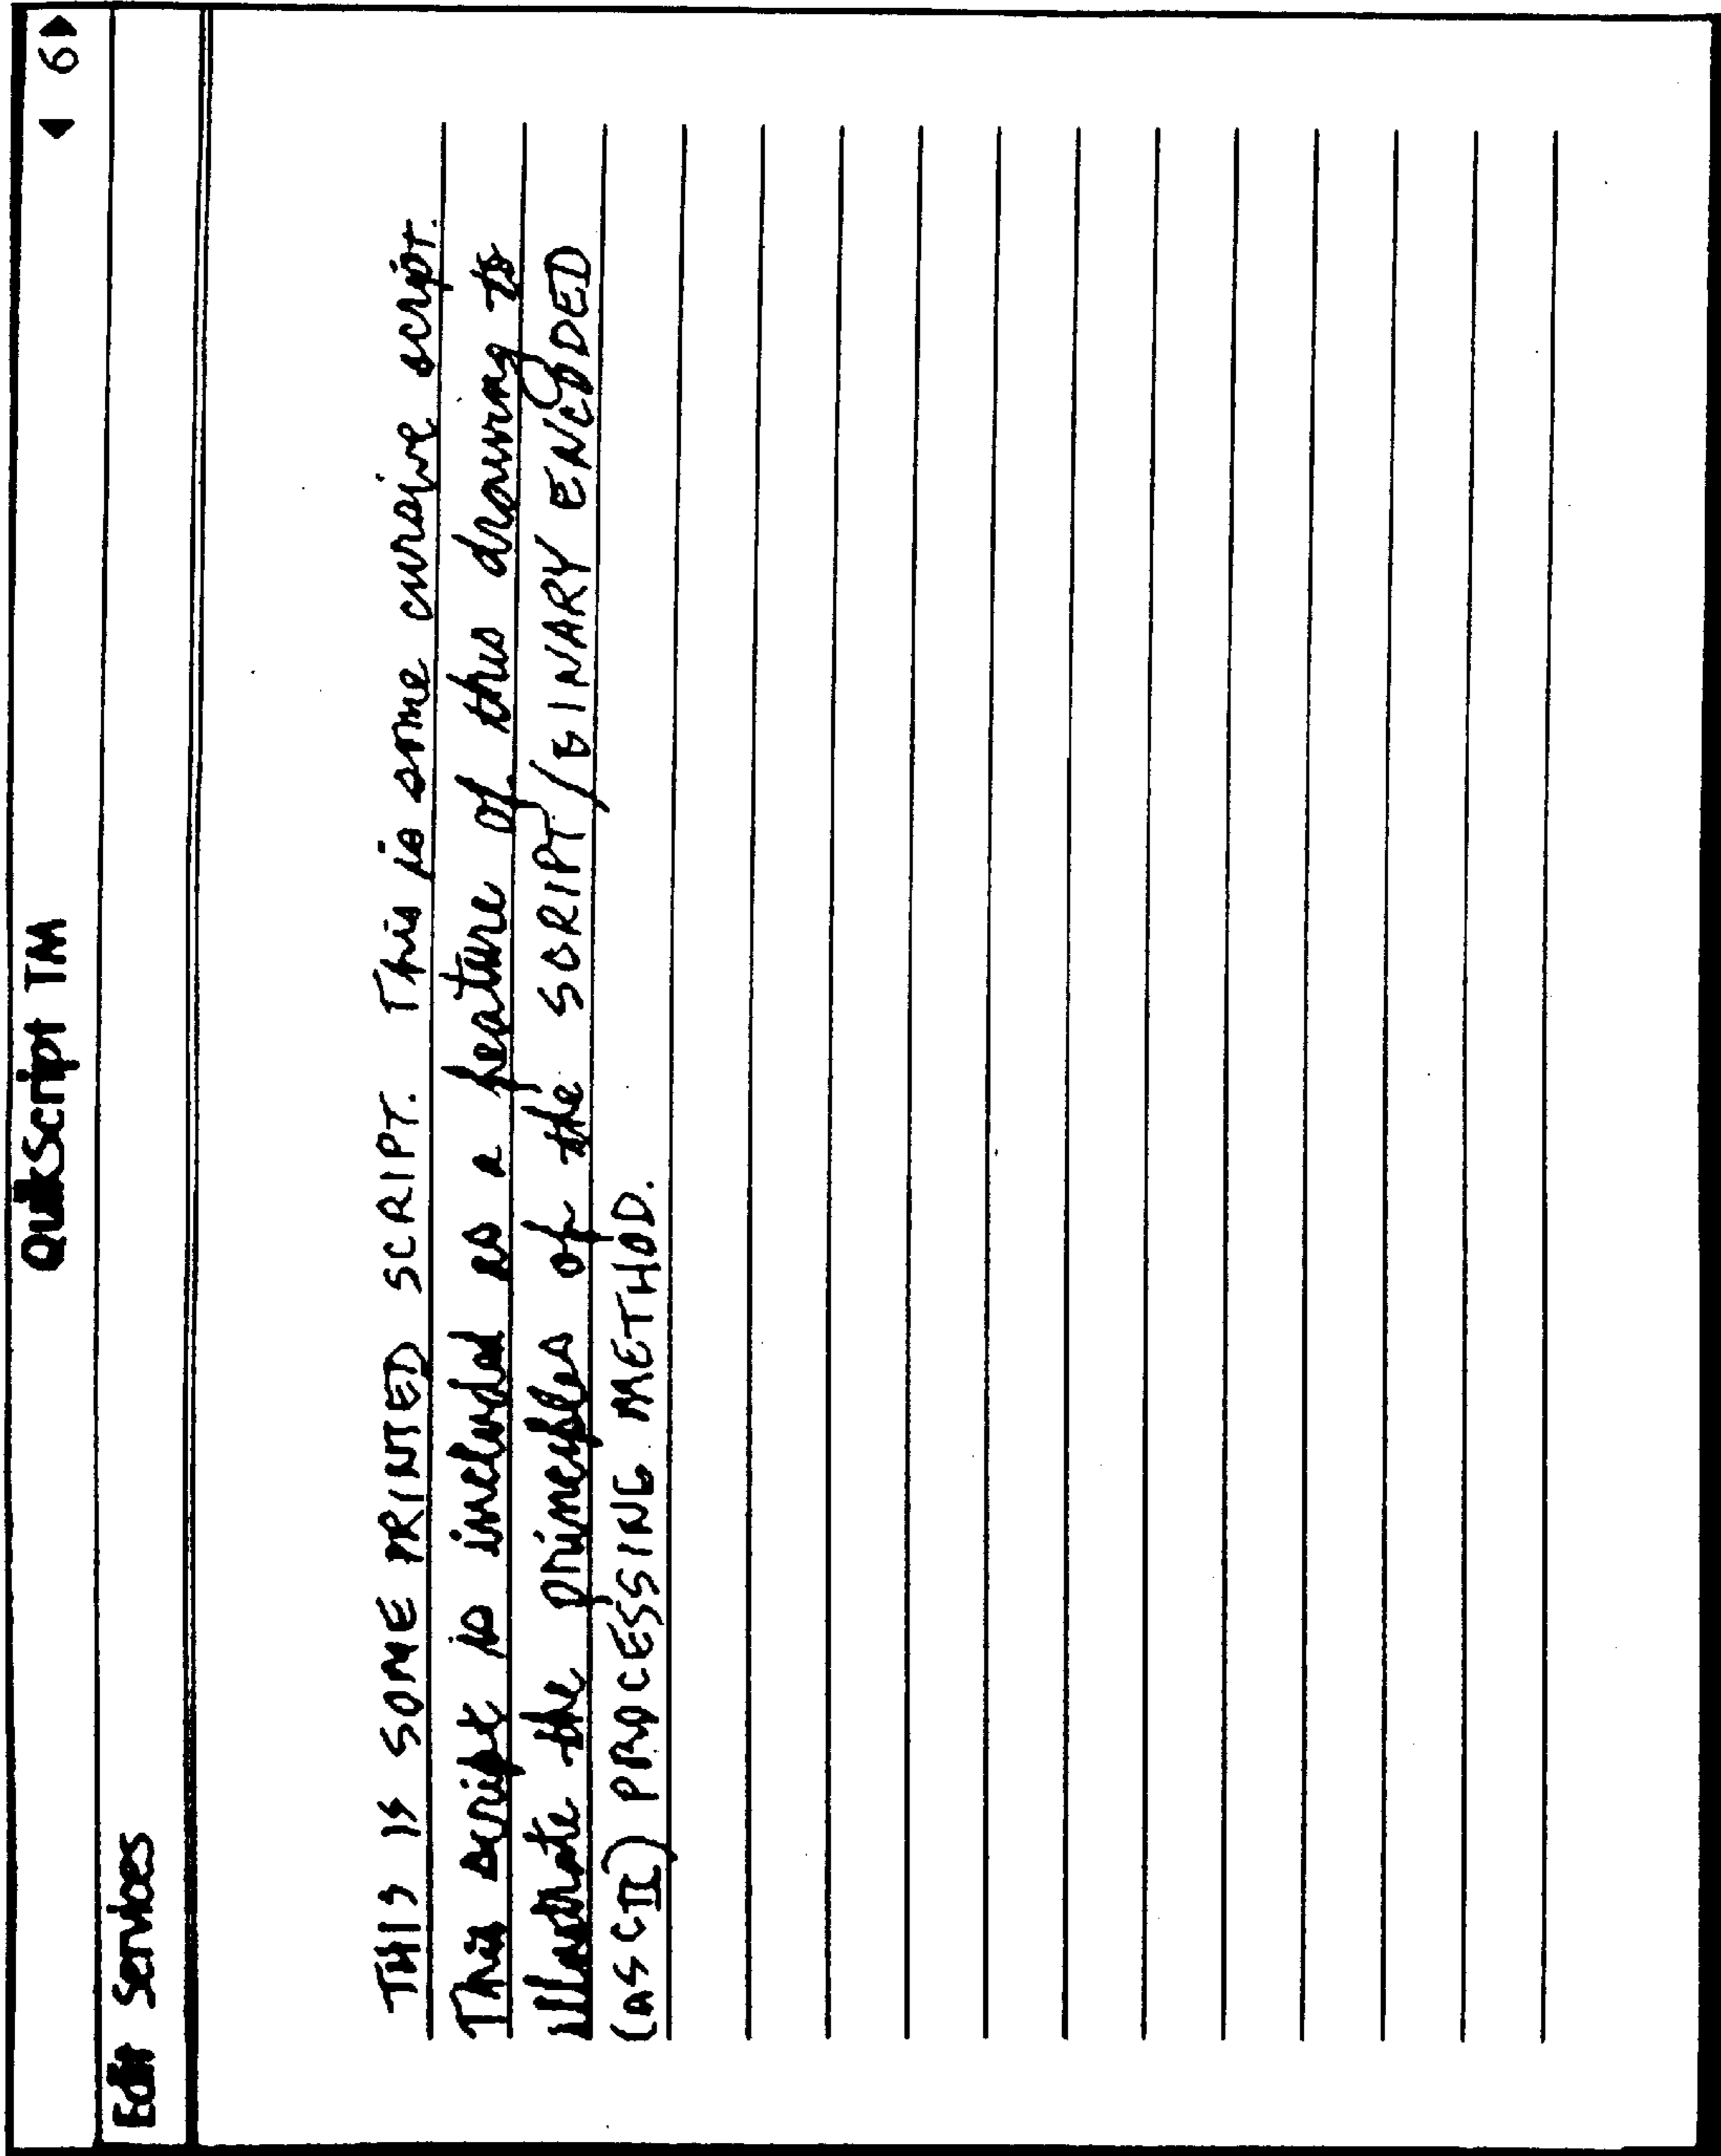 QuikScript TM
◀ 6▶
Edit Services
THIS IS SOME PRINTED SCRIPT. This is some cursive script.
This script is included as a feature of this drawing to
illustrate the principles of the SCRIPT/BINARY ENCODED
(ASCII) PROCESSING METHOD.